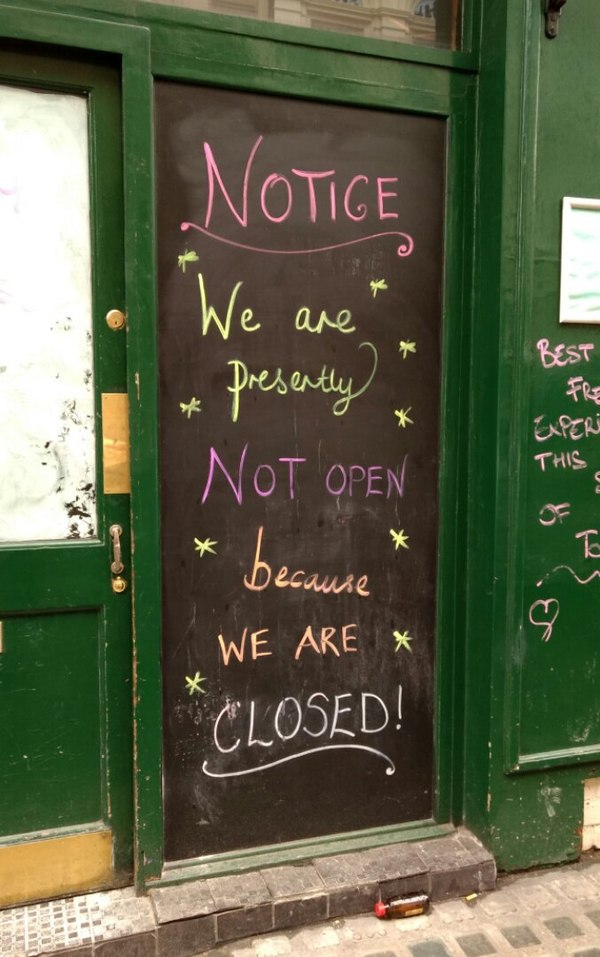 NOTICE
We are
presently
NOT OPEN
because
WE ARE
CLOSED!
BEST
THIS
OF